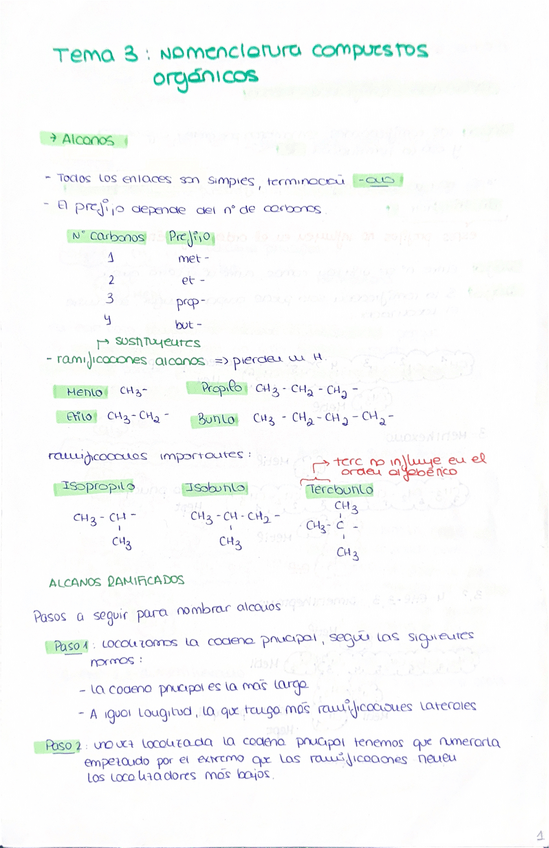 Tema 3: Nomenclatura compuestos
orgánicos
→ Alcanos
- Todos los enlaces son simples, terminación -ano
- El prefijo depende del nº de carbonos.
Nº carbonos Prefijo
1 met-
2 et-
3 prop-
4 but-
↦ sustituyentes
- ramificaciones alcanos => pierden un H.
Metilo CH3- Propilo CH3-CH2-CH2-
Etilo CH3-CH2- Butilo CH3-CH2-CH2-CH2-
ramificaciones importantes:
↦ terc no influye en el
orden alfabético
Isopropilo Isobutilo Tercbutilo
CH3
CH3-CH- CH3-CH-CH2- CH3-C-
CH3 CH3 CH3
ALCANOS RAMIFICADOS
Pasos a seguir para nombrar alcanos
Paso 1: Localizamos la cadena principal, según las siguientes
normas:
- La cadena principal es la más larga
- A igual longitud, la que tenga más ramificaciones laterales
Paso 2: una vez localizada la cadena principal tenemos que numerarla
empezando por el extremo que las ramificaciones lleven
los localizadores más bajos.
1